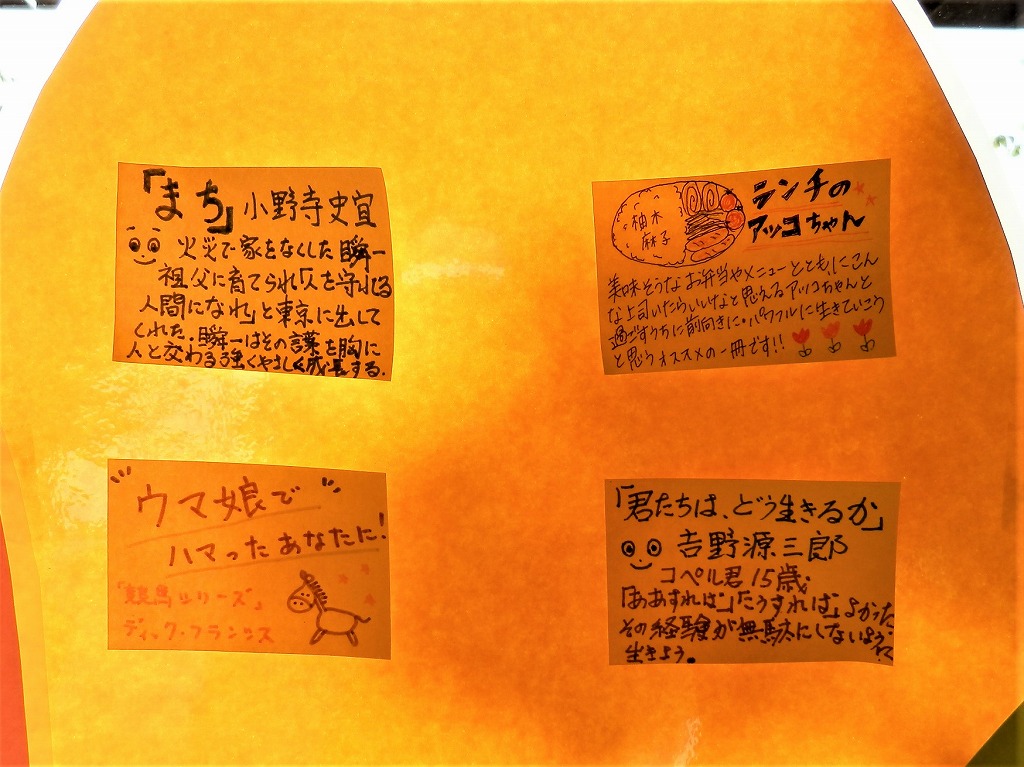 「まち」小野寺史宜
火災で家をなくした瞬一
祖父に育てられ「人を守れる
人間になれ」と東京に出して
くれた。瞬一はその言葉を胸に
人と交わる強くやさしく成長する.
柚木
麻子
ランチの
アッコちゃん
美味そうなお弁当やメニューとともにこん
な上司いたらいいなと思えるアッコちゃんと
過ごすうちに前向きに・パワフルに生きていこう
と思うオススメの一冊です!!
ウマ娘で
ハマったあなたに!
「競馬シリーズ」
ディック・フランシス
「君たちは、どう生きるか」
吉野源三郎
コペル君15歳。
「ああすれば」「こうすれば」よかった
その経験が無駄にしないように
生きよう。